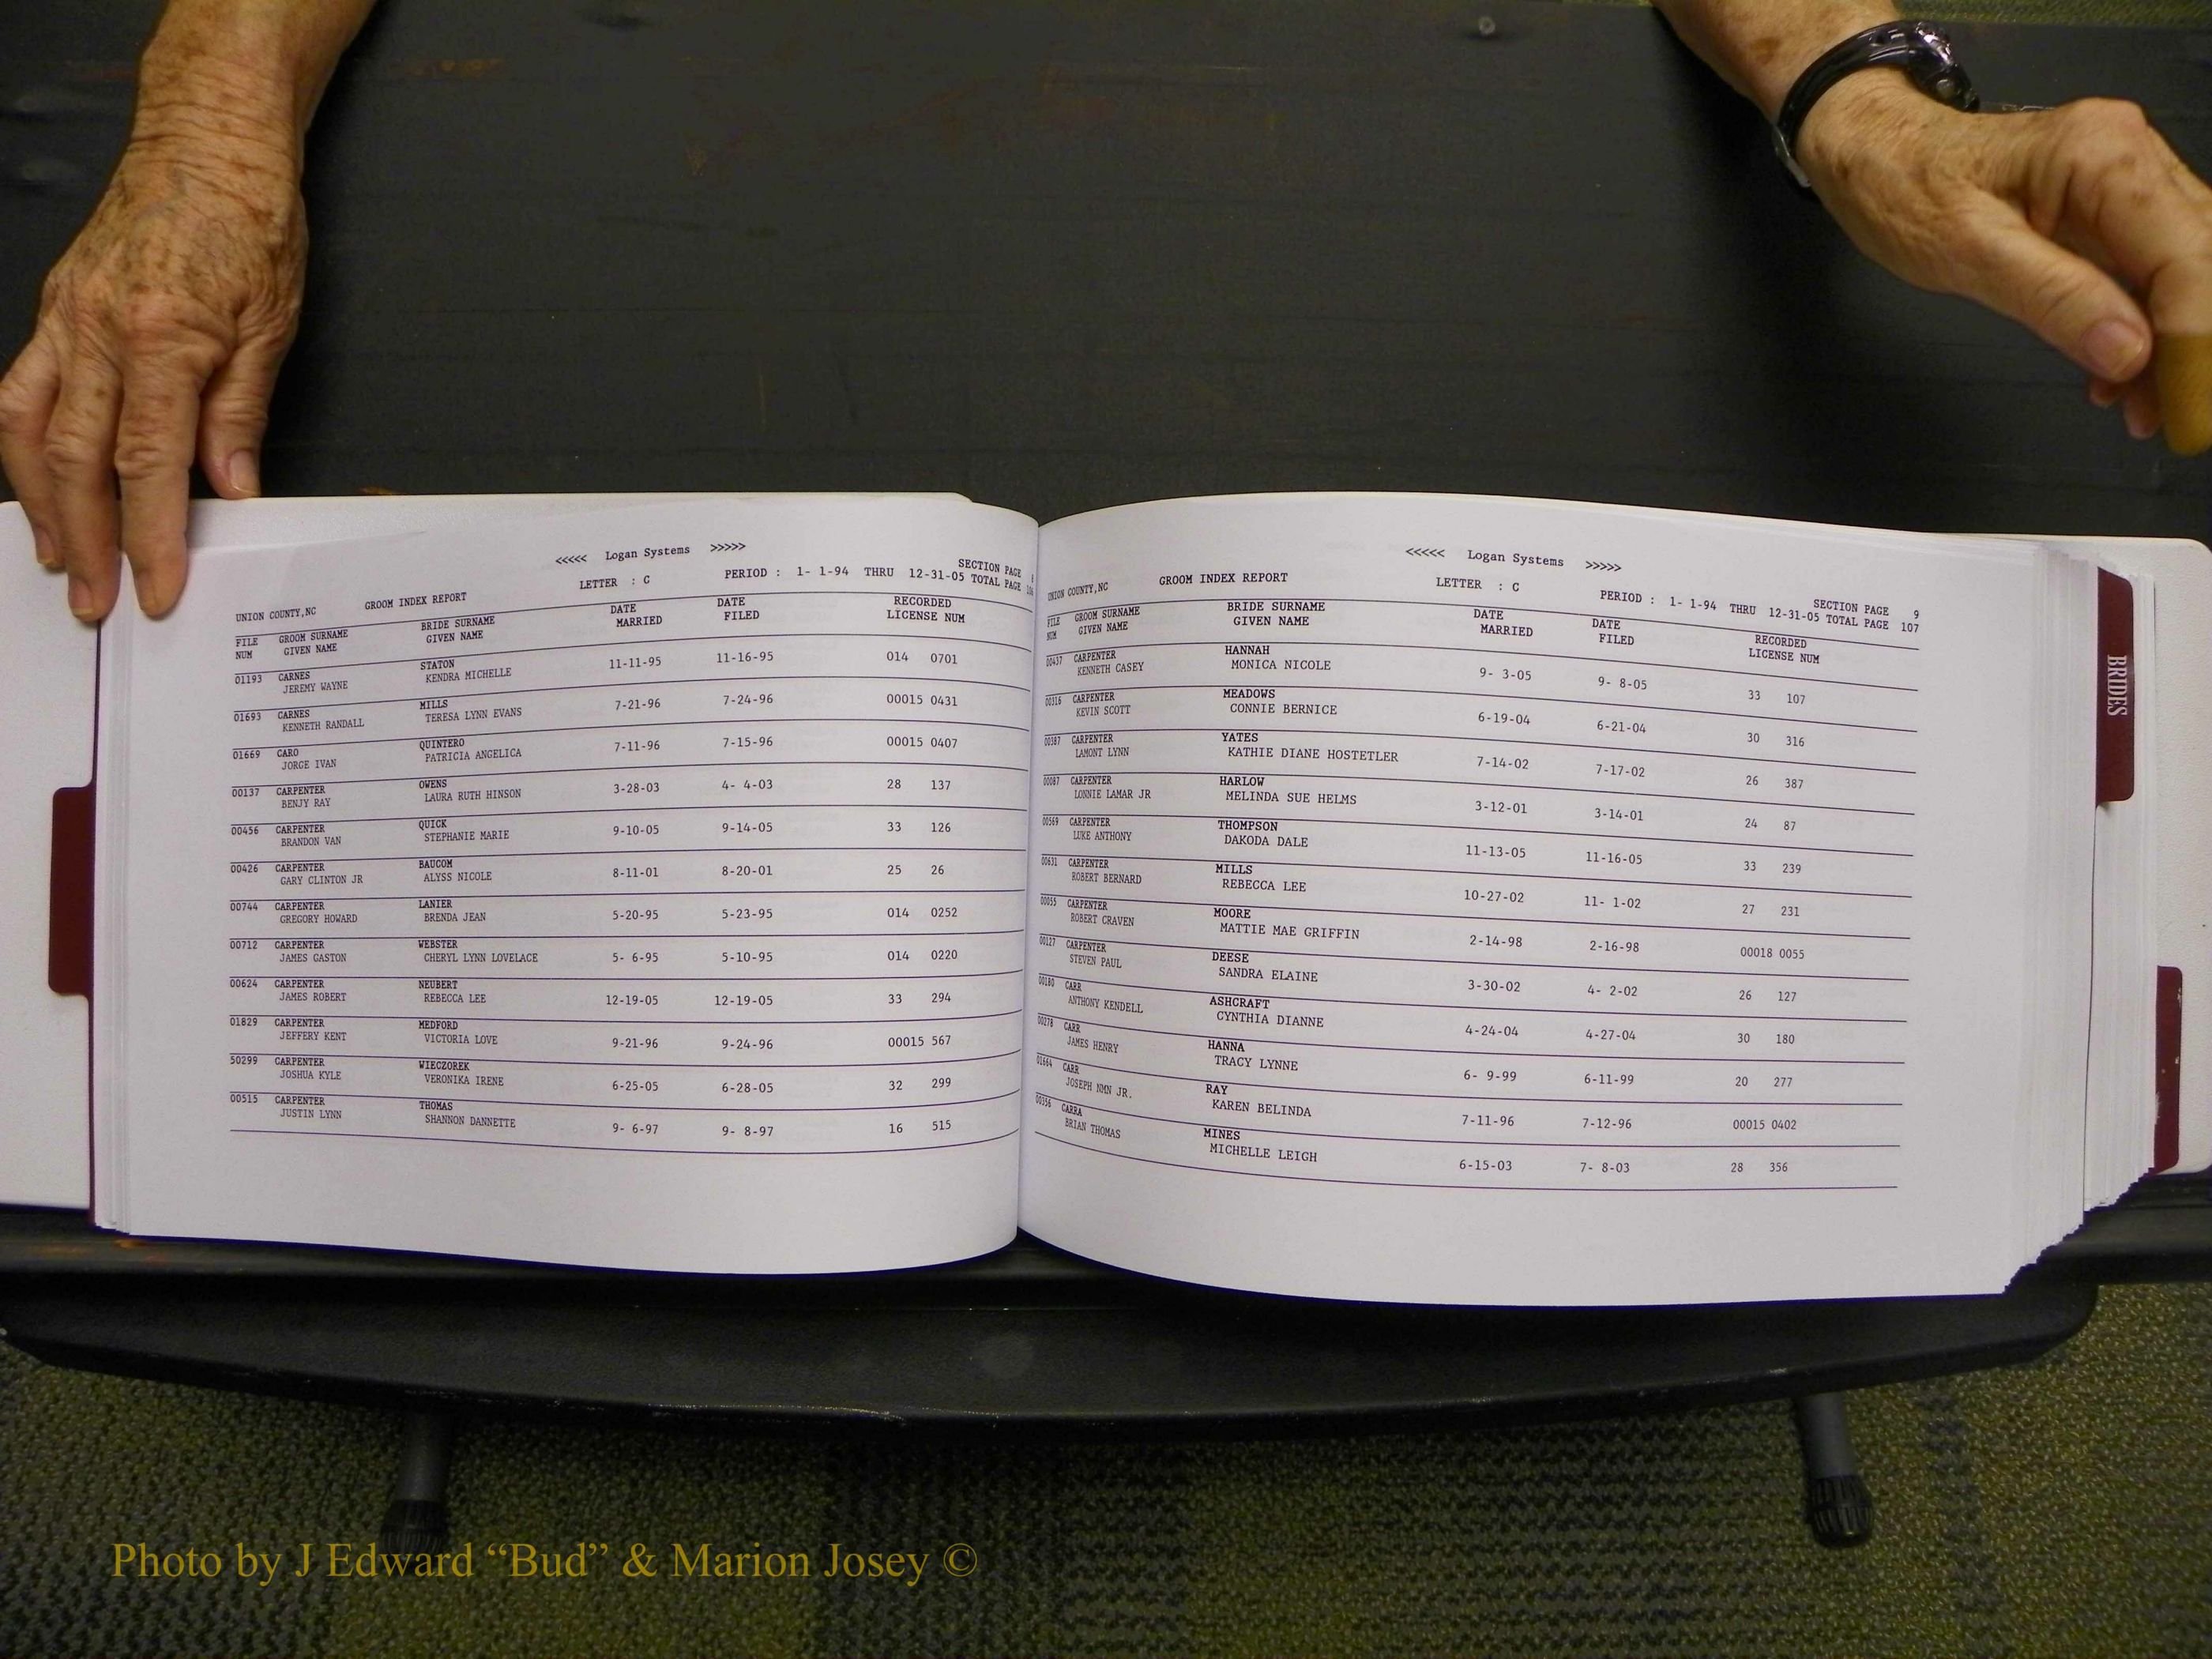 <<<<< Logan Systems >>>>>
SECTION PAGE
LETTER : C PERIOD : 1- 1-94 THRU 12-31-05 TOTAL PAGE
UNION COUNTY,NC GROOM INDEX REPORT
FILE GROOM SURNAME BRIDE SURNAME DATE DATE RECORDED
NUM GIVEN NAME GIVEN NAME MARRIED FILED LICENSE NUM
01193 CARNES STATON 11-11-95 11-16-95 014 0701
JEREMY WAYNE KENDRA MICHELLE
01693 CARNES MILLS 7-21-96 7-24-96 00015 0431
KENNETH RANDALL TERESA LYNN EVANS
01669 CARO QUINTERO 7-11-96 7-15-96 00015 0407
JORGE IVAN PATRICIA ANGELICA
00137 CARPENTER OWENS 3-28-03 4- 4-03 28 137
BENJY RAY LAURA RUTH HINSON
00456 CARPENTER QUICK 9-10-05 9-14-05 33 126
BRANDON VAN STEPHANIE MARIE
00426 CARPENTER BAUCOM 8-11-01 8-20-01 25 26
GARY CLINTON JR ALYSS NICOLE
00744 CARPENTER LANIER 5-20-95 5-23-95 014 0252
GREGORY HOWARD BRENDA JEAN
00712 CARPENTER WEBSTER 5- 6-95 5-10-95 014 0220
JAMES GASTON CHERYL LYNN LOVELACE
00624 CARPENTER NEUBERT 12-19-05 12-19-05 33 294
JAMES ROBERT REBECCA LEE
01829 CARPENTER MEDFORD 9-21-96 9-24-96 00015 567
JEFFERY KENT VICTORIA LOVE
50299 CARPENTER WIECZOREK 6-25-05 6-28-05 32 299
JOSHUA KYLE VERONIKA IRENE
00515 CARPENTER THOMAS 9- 6-97 9- 8-97 16 515
JUSTIN LYNN SHANNON DANNETTE
<<<<< Logan Systems >>>>>
SECTION PAGE 9
UNION COUNTY,NC GROOM INDEX REPORT LETTER : C PERIOD : 1- 1-94 THRU 12-31-05 TOTAL PAGE 107
FILE GROOM SURNAME BRIDE SURNAME DATE DATE RECORDED
NUM GIVEN NAME GIVEN NAME MARRIED FILED LICENSE NUM
00437 CARPENTER HANNAH 9- 3-05 9- 8-05 33 107
KENNETH CASEY MONICA NICOLE
00316 CARPENTER MEADOWS 6-19-04 6-21-04 30 316
KEVIN SCOTT CONNIE BERNICE
00387 CARPENTER YATES 7-14-02 7-17-02 26 387
LAMONT LYNN KATHIE DIANE HOSTETLER
00087 CARPENTER HARLOW 3-12-01 3-14-01 24 87
LONNIE LAMAR JR MELINDA SUE HELMS
00569 CARPENTER THOMPSON 11-13-05 11-16-05 33 239
LUKE ANTHONY DAKODA DALE
00631 CARPENTER MILLS 10-27-02 11- 1-02 27 231
ROBERT BERNARD REBECCA LEE
00055 CARPENTER MOORE 2-14-98 2-16-98 00018 0055
ROBERT CRAVEN MATTIE MAE GRIFFIN
00127 CARPENTER DEESE 3-30-02 4- 2-02 26 127
STEVEN PAUL SANDRA ELAINE
00180 CARR ASHCRAFT 4-24-04 4-27-04 30 180
ANTHONY KENDELL CYNTHIA DIANNE
00278 CARR HANNA 6- 9-99 6-11-99 20 277
JAMES HENRY TRACY LYNNE
01664 CARR RAY 7-11-96 7-12-96 00015 0402
JOSEPH NMN JR. KAREN BELINDA
00356 CARRA MINES 6-15-03 7- 8-03 28 356
BRIAN THOMAS MICHELLE LEIGH
BRIDES
Photo by J Edward “Bud” & Marion Josey ©